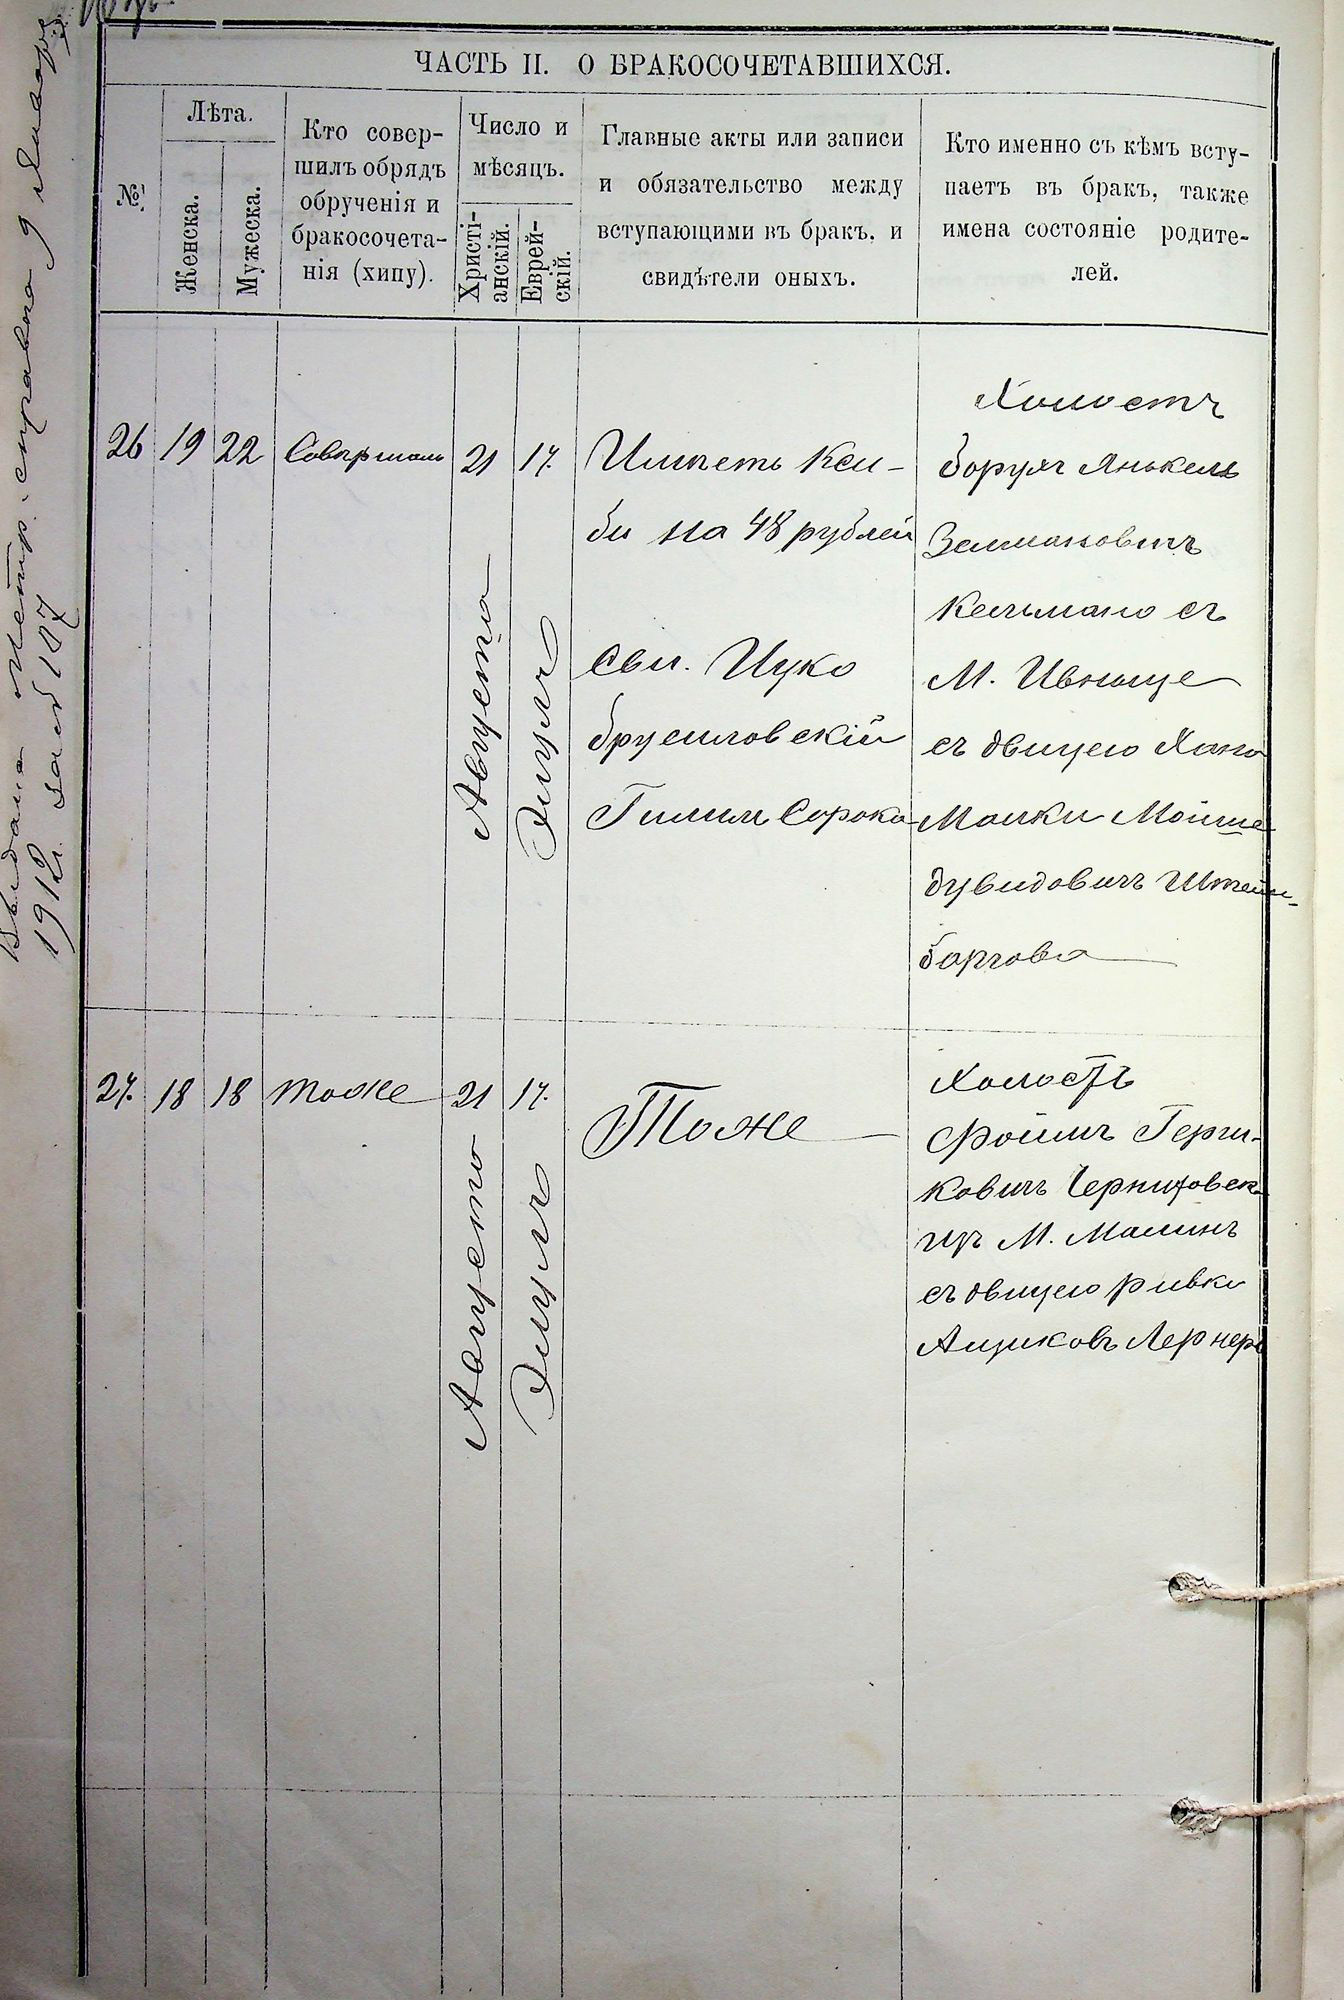 ЧАСТЬ II. О БРАКОСОЧЕТАВШИХСЯ.
№
Лѣта.
Женска.
Мужеска.
Кто совер-
шилъ обрядъ
обрученія и
бракосочета-
нія (хипу).
Число и
мѣсяцъ.
Христі-
анскій.
Еврей-
скій.
Главные акты или записи
и обязательство между
вступающими въ бракъ, и
свидѣтели оныхъ.
Кто именно съ кѣмъ всту-
паетъ въ бракъ, также
имена состояніе родите-
лей.
26 19 22
21 17.
Августа
Элулъ
на 48 рублей
Сви. Ицко
Брусиловскій
Сорока
Холостъ
Борухъ Янькель
Зельмановичъ
Кельмано съ
М. Ивнице
съ двицею Хана
Малки Мойше
Дувидовичъ Штейн-
баргова
27. 18 18 тоже 21 17.
Августа
Элулъ
Тоже
Холостъ
Фроимъ Герш-
ковичъ
изъ М. Малинъ
съ двицею Ривки
Лернеръ
Выдана метр. справка 9 января
1912 г. за № 187